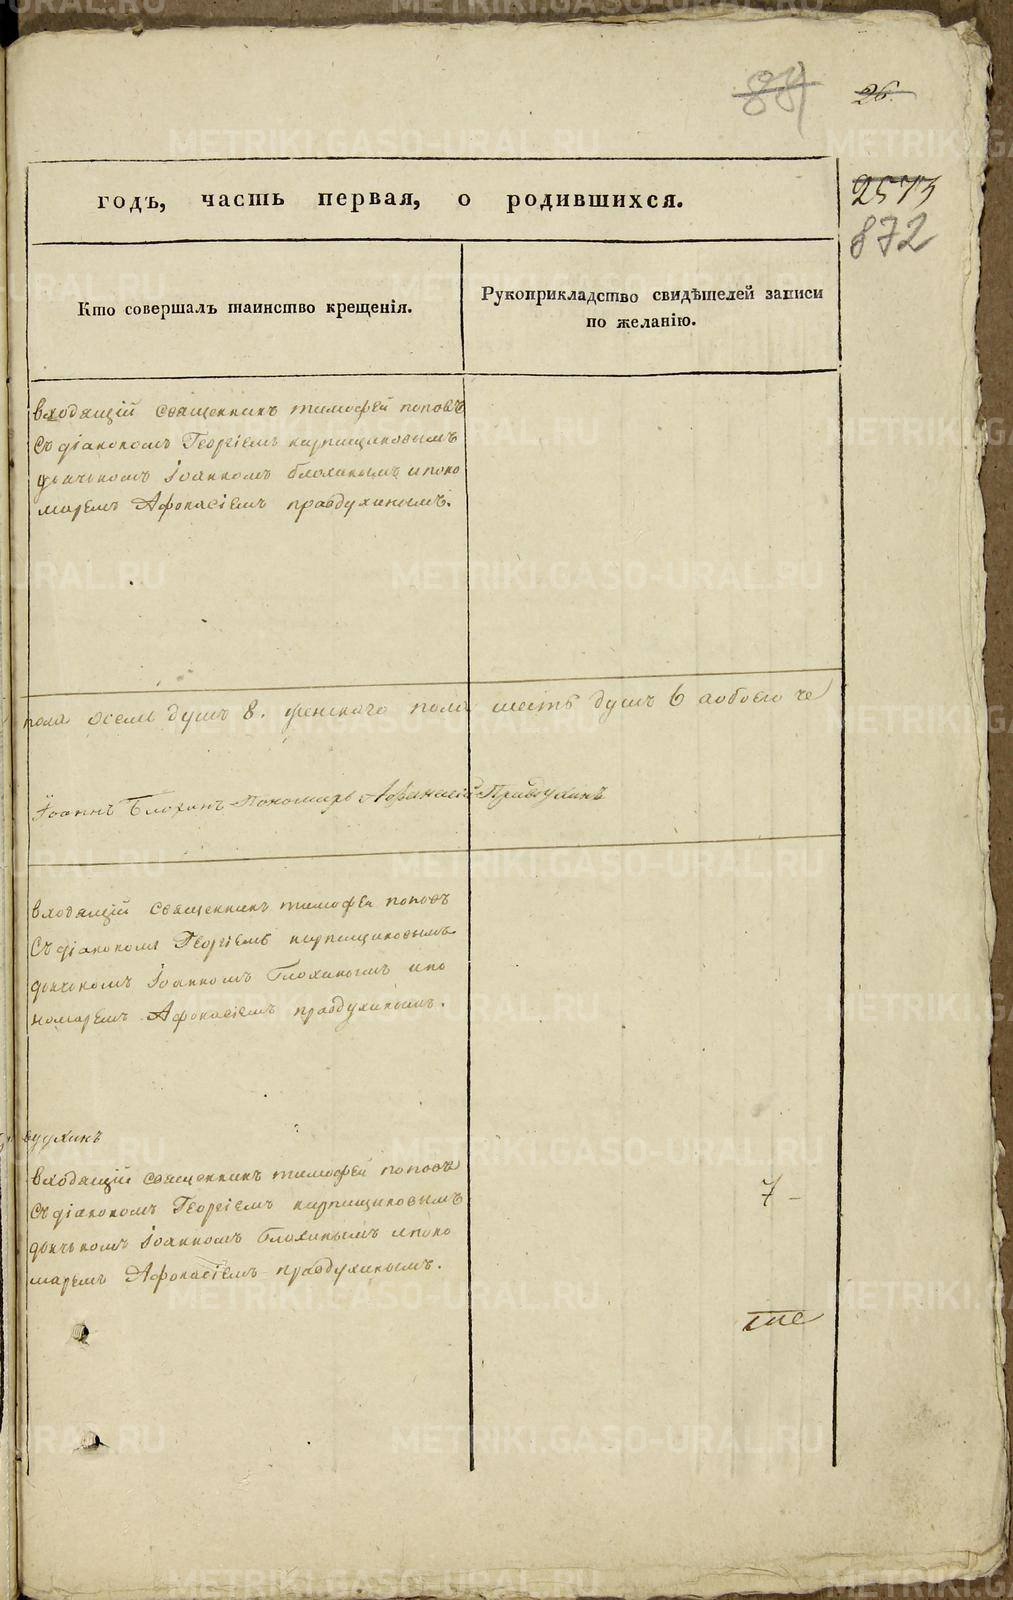 84
26.
годъ, часть первая, о родившихся.
2573
872
Кто совершалъ таинство крещенія.
Рукоприкладство свидѣтелей записи
по желанію.
входящій священникъ тимофей поповъ
съ діакономъ Георгіемъ кирпищиковымъ
дьячкомъ Іоанномъ блохинымъ и поно
маремъ Афонасіемъ правдухинымъ.
пола осемь душъ 8. женского пола шесть душъ 6 а обоего че
Іоаннъ Блохинъ Пономарь Афанасій Правдухинъ
входящій священникъ тимофей поповъ
съ діакономъ Георгіемъ кирпищиковымъ
дьячкомъ Іоанномъ Блохинымъ и по
номаремъ Афонасіемъ правдухинымъ.
вдухинъ
входящій священникъ тимофей поповъ
съ діакономъ Георгіемъ кирпищиковымъ
дьячкомъ Іоанномъ Блохинымъ и поно
маремъ Афонасіемъ правдухинымъ.
7 -
METRIKI.GASO-URAL.RU